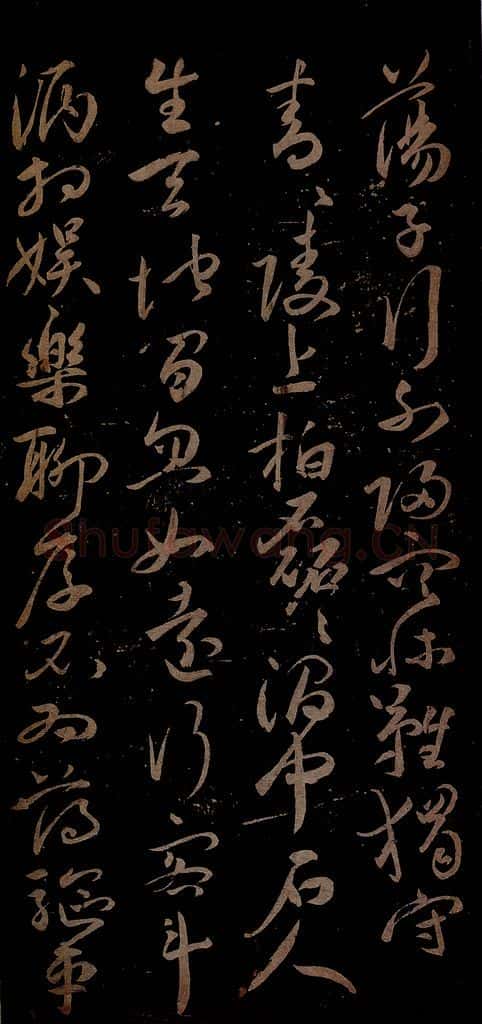 蕩子行不歸空牀難獨守
青〻陵上柏磊〻澗中石人
生天地間忽如遠行客斗
酒相娛樂聊厚不為薄驅車
Shufawang.CN